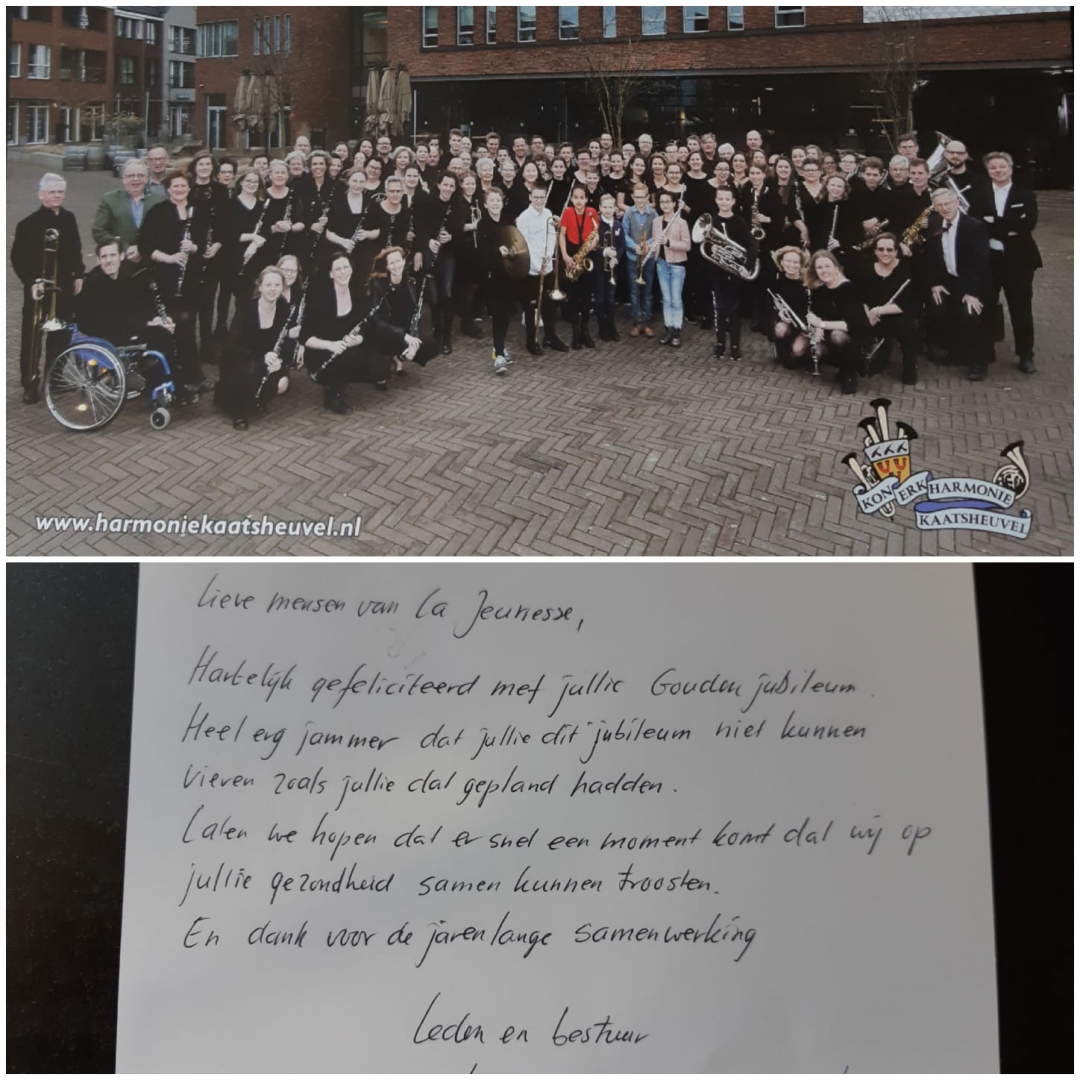 www.harmoniekaatsheuvel.nl
KON ERK HARMONIE
KAATSHEUVEL
Lieve mensen van La Jeunesse,
Hartelijk gefeliciteerd met jullie Gouden jubileum.
Heel erg jammer dat jullie dit jubileum niet kunnen
vieren zoals jullie dat gepland hadden.
Laten we hopen dat er snel een moment komt dat wij op
jullie gezondheid samen kunnen troosten.
En dank voor de jarenlange samenwerking
Leden en bestuur